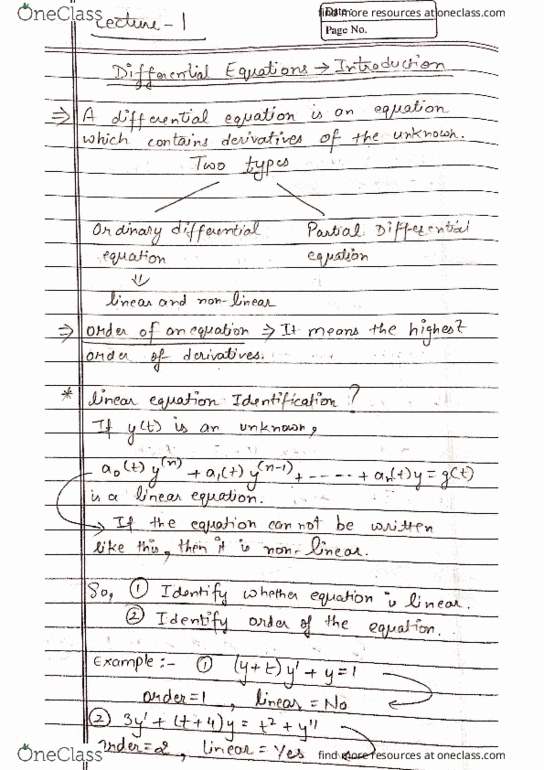 OneClass
find more resources at oneclass.com
Lecture-1
Page No.
Differential Equations → Introduction
⇒ A differential equation is an equation
which contains derivatives of the unknown.
Two types
Ordinary differential Partial Differential
equation equation
⇓
linear and non-linear
⇒ Order of an equation ⇒ It means the highest
order of derivatives.
* linear equation Identification?
If y(t) is an unknown,
a₀(t) y⁽ⁿ⁾ + a₁(t) y⁽ⁿ⁻¹⁾ + ----- + aₙ(t)y = g(t)
is a linear equation.
→ If the equation can not be written
like this, then it is non-linear.
So, ① Identify whether equation is linear.
② Identify order of the equation.
Example :- ① (y+t)y' + y = 1
order=1, linear = No
② 3y' + (t+4)y = t² + y''
order=2, linear = Yes
OneClass
find more resources at oneclass.com